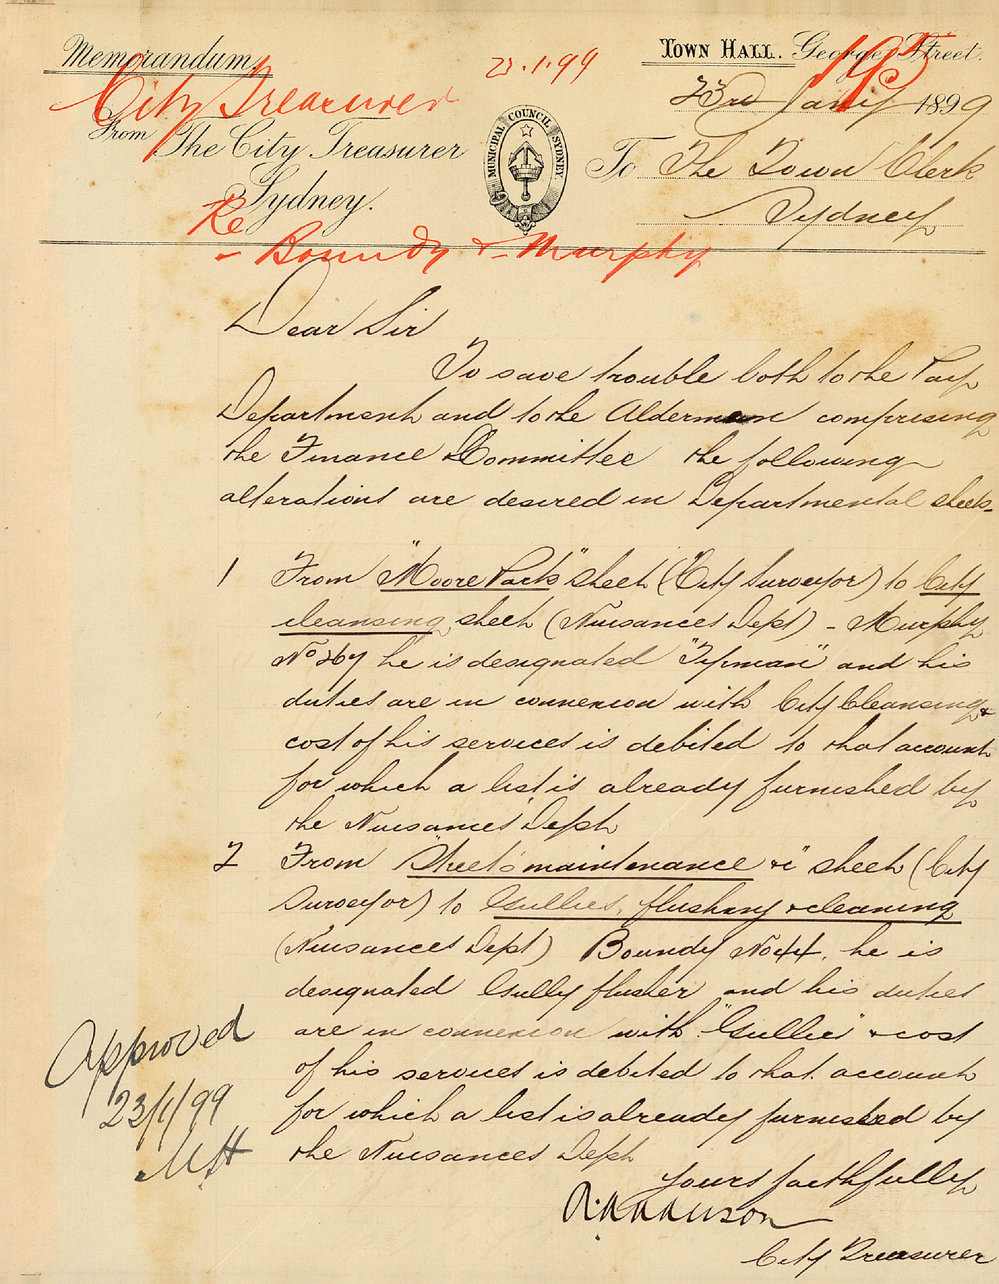 Memorandum.
TOWN HALL. George Street.
23.1.99
195
City Treasurer
23rd Jany 1899
From The City Treasurer
Sydney.
MUNICIPAL COUNCIL SYDNEY
To The Town Clerk
Sydney
Re
- Boundy & Murphy
Dear Sir
To save trouble both to the Pay
Department and to the Aldermen comprising
the Finance Committee the following
alterations are desired in Departmental sheets.
1 From "Moore Park" sheet (City Surveyor) to City
cleansing sheet (Nuisances Dept) - Murphy
No 267 he is designated "Tipman" and his
duties are in connexion with City Cleansing &
cost of his services is debited to that account
for which a list is already furnished by
the Nuisances Dept
2 From "Streets maintenance &c" sheet (City
Surveyor) to Gullies, flushing & cleaning
(Nuisances Dept) Boundy No 44, he is
designated Gully flusher and his duties
are in connexion with "Gullies" & cost
of his services is debited to that account
for which a list is already furnished by
the Nuisances Dept
Yours faithfully
City Treasurer
Approved
23/1/99